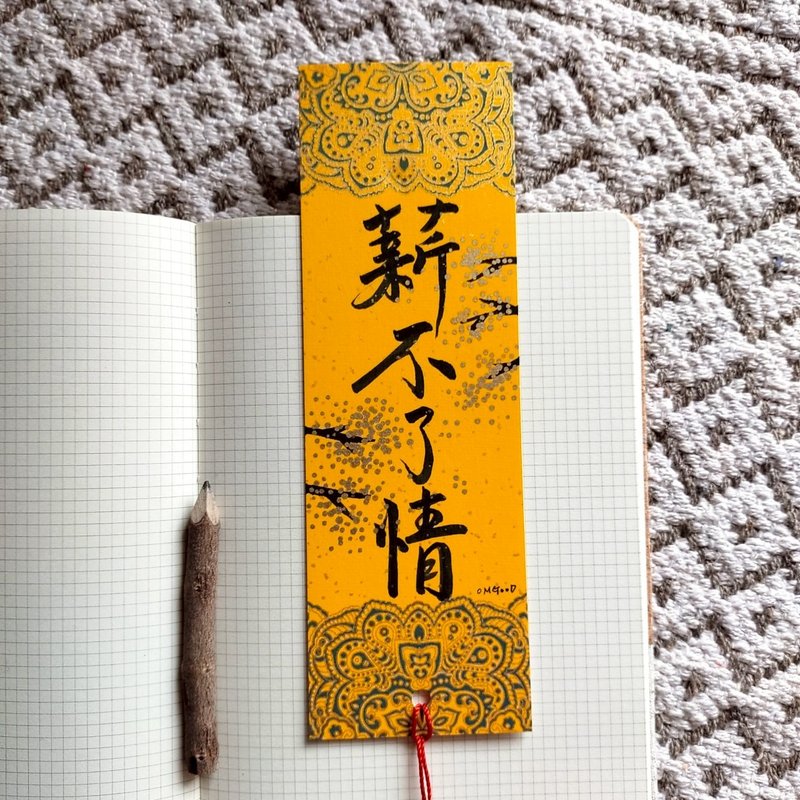 薪不了情
OMGooD